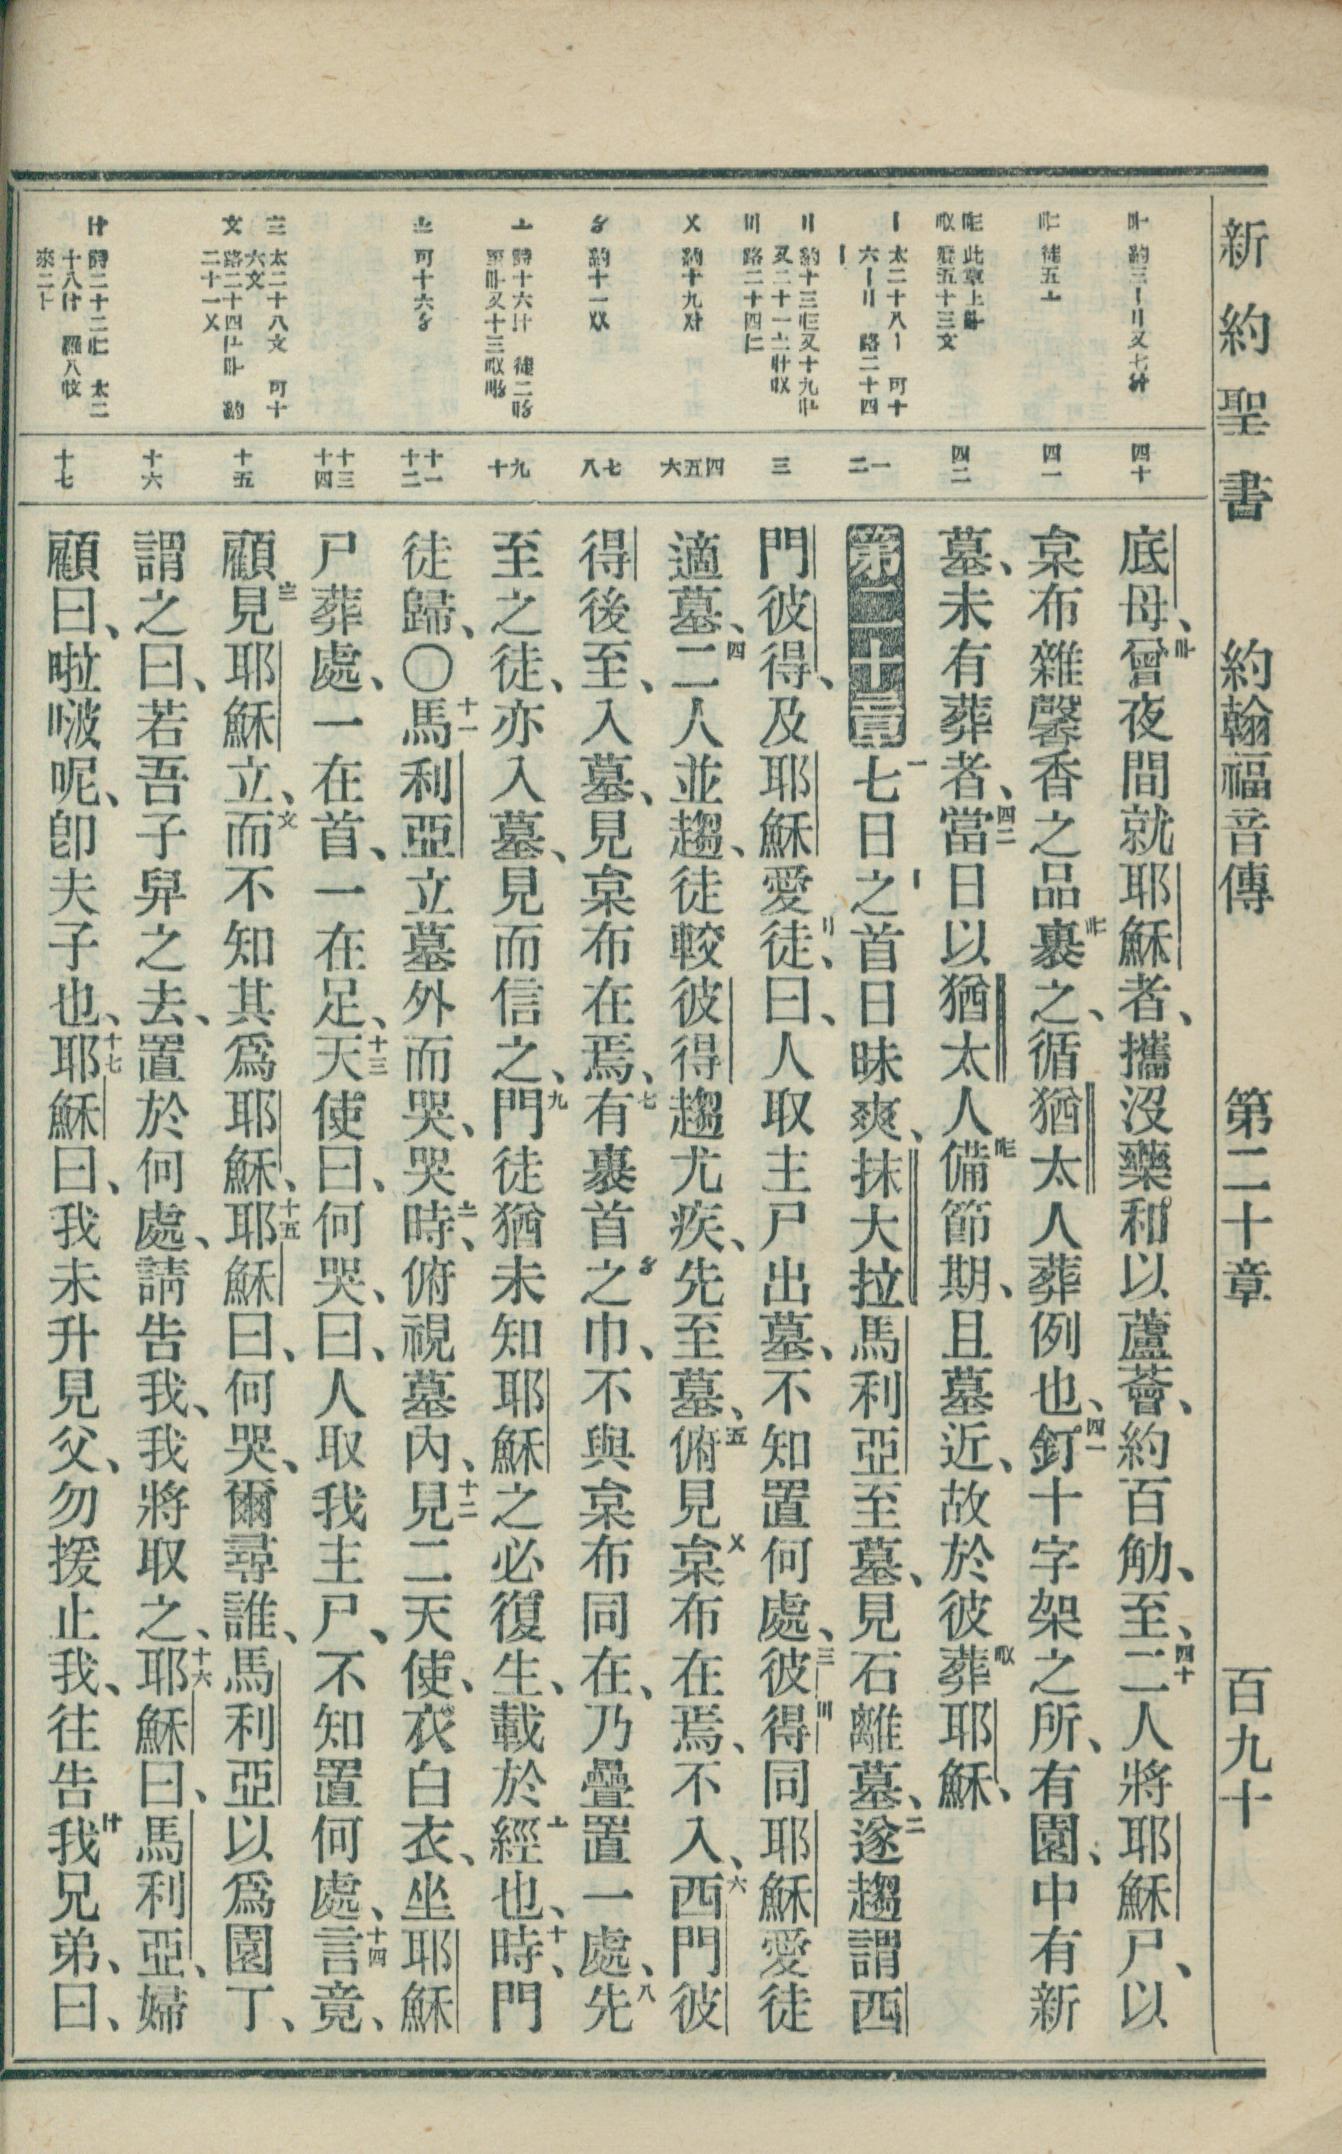 新約聖書 約翰福音傳 第二十章 百九十
四十
四一
四二
一 二
三
四 五 六
七 八
九 十
十一 十二
十三 十四
十五
十六
十七
底母、曾夜間就耶穌者、攜沒藥和以蘆薈、約百觔、至、四十二人將耶穌尸、以
枲布雜馨香之品裹之、循猶太人葬例也、四一釘十字架之所、有園、中有新
墓、未有葬者、四二當日以猶太人備節期、且墓近、故於彼葬耶穌、
第二十章 一七日之首日昧爽、抹大拉馬利亞至墓、見石離墓、二遂趨謂西
門彼得、及耶穌愛徒、曰、人取主尸出墓、不知置何處、三彼得同耶穌愛徒
適墓、四二人並趨、徒較彼得趨尤疾、先至墓、五俯見枲布在焉、不入、六西門彼
得後至、入墓、見枲布在焉、七有裹首之巾、不與枲布同在、乃疊置一處、八先
至之徒、亦入墓、見而信之、九門徒猶未知耶穌之必復生、載於經也、十時、門
徒歸、〇十一馬利亞立墓外而哭、哭時、俯視墓內、十二見二天使、衣白衣、坐耶穌
尸葬處、一在首、一在足、十三天使曰、何哭、曰、人取我主尸、不知置何處、十四言竟、
顧見耶穌立、而不知其爲耶穌、十五耶穌曰、何哭、爾尋誰、馬利亞以爲園丁、
謂之曰、若吾子舁之去、置於何處、請告我、我將取之、十六耶穌曰、馬利亞、婦
顧曰、啦啵呢、卽夫子也、十七耶穌曰、我未升見父、勿援止我、往告我兄弟、曰、